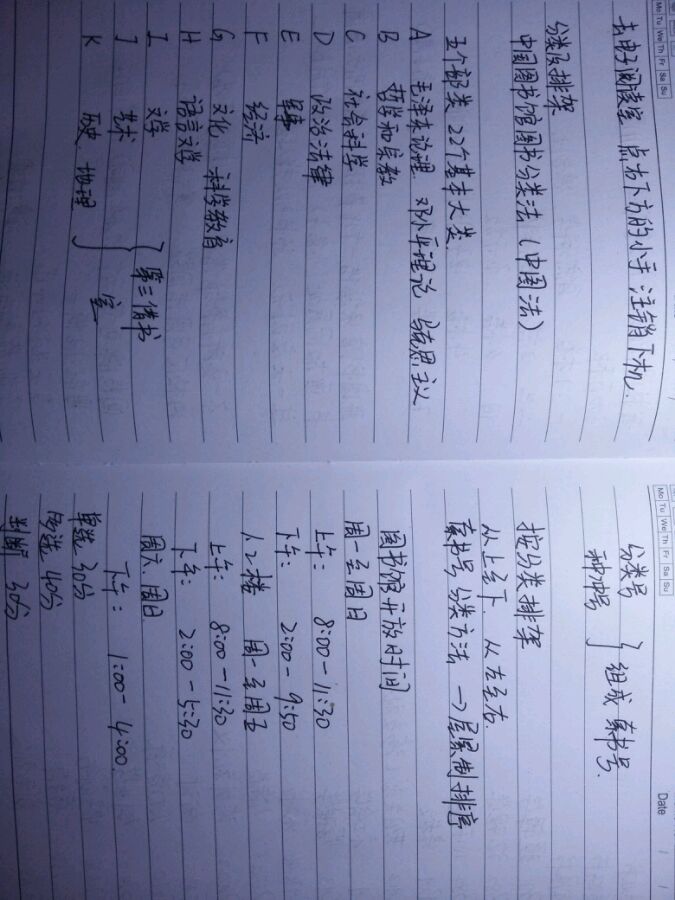 Mo Tu We Th Fr Sa Su
去电子阅读室 点右下方的小手 注销下机.
分类及排架
中国图书馆图书分类法(中图法)
五个部类 22个基本大类
A 毛泽东 邓小平理论 马克思主义
B 哲学和宗教
C 社会科学
D 政治法律
E 军事
F 经济
G 文化 科学教育
H 语言文学
I 文学
J 艺术
K 历史 地理
第三借书
室
Mo Tu We Th Fr Sa Su
Date / /
分类号
种次号
组成 索书号.
按分类排架
从上至下. 从左至右.
索书号 分类方法 → 层累制排序
图书馆开放时间
周一至周日
上午: 8:00-11:30
下午: 2:00-9:50
周一至周五
上午: 8:00-11:30
下午: 2:00-5:30
周六、周日
下午: 1:00-4:00.
单选 30分
多选 40分
判断 30分